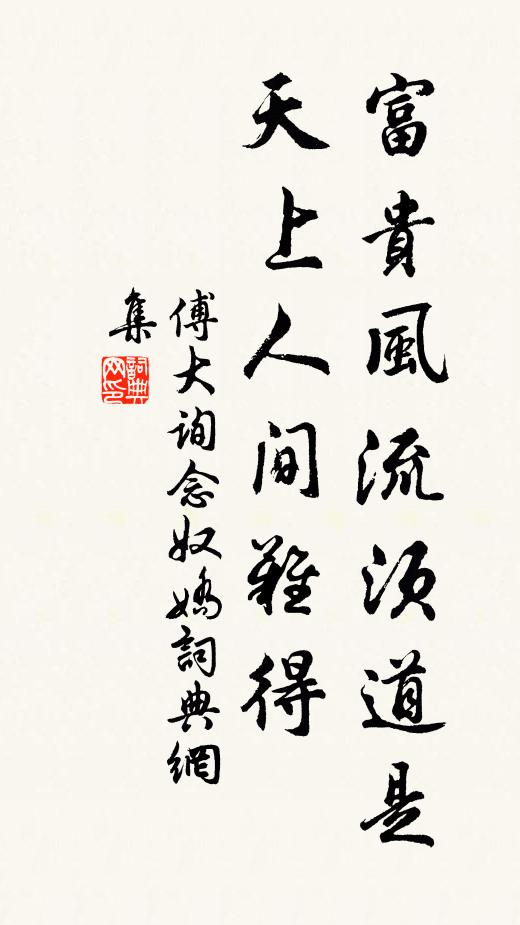 富貴風流須道是
天上人间難得
傅大询念奴嬌詞典網
集
詞典
网印